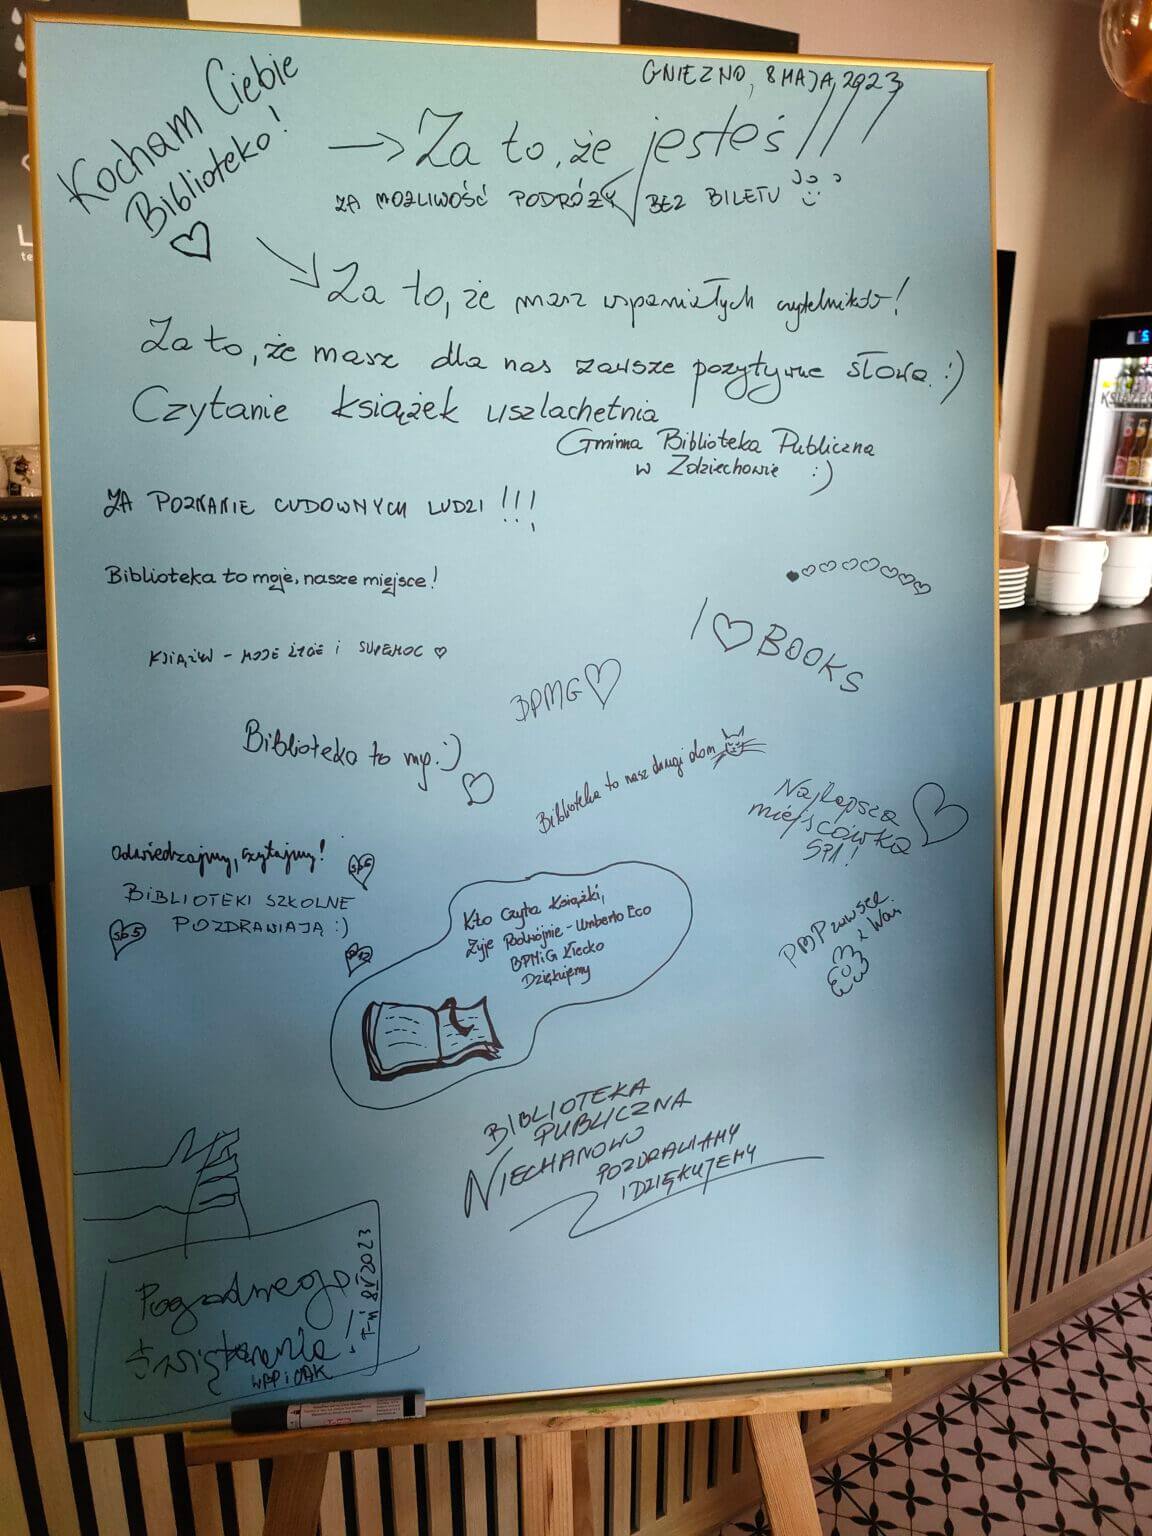 GNIEZNO, 8 MAJA 2023
Kocham Ciebie
Biblioteko!
Za to, że jesteś!!!
ZA MOŻLIWOŚĆ PODRÓŻY BEZ BILETU
Za to, że masz wspaniałych czytelników!
Za to, że masz dla nas zawsze pozytywne słowa. :)
Czytanie książek uszlachetnia
Gminna Biblioteka Publiczna
w Zdziechowie :)
ZA POZNANIE CUDOWNYCH LUDZI !!!
Biblioteka to moje, nasze miejsce!
I ♡ BOOKS
KSIĄŻKI - MOJE ŻYCIE I SUPEMOC ♡
BPMG ♡
Biblioteka to my :)
Biblioteka to nasz drugi dom
Najlepsza
miejscówka
SP1!
Odwiedzajmy, czytajmy!
BIBLIOTEKI SZKOLNE
POZDRAWIAJĄ :)
SP5
Kto Czyta Książki,
Żyje Podwójnie - Umberto Eco
BPMiG Kłecko
Dziękujemy
PBP zawsze
z Wami
BIBLIOTEKA
PUBLICZNA
NIECHANOWO
POZDRAWIAMY
I DZIĘKUJEMY
Pogodnego
świętowania!
8 V 2023